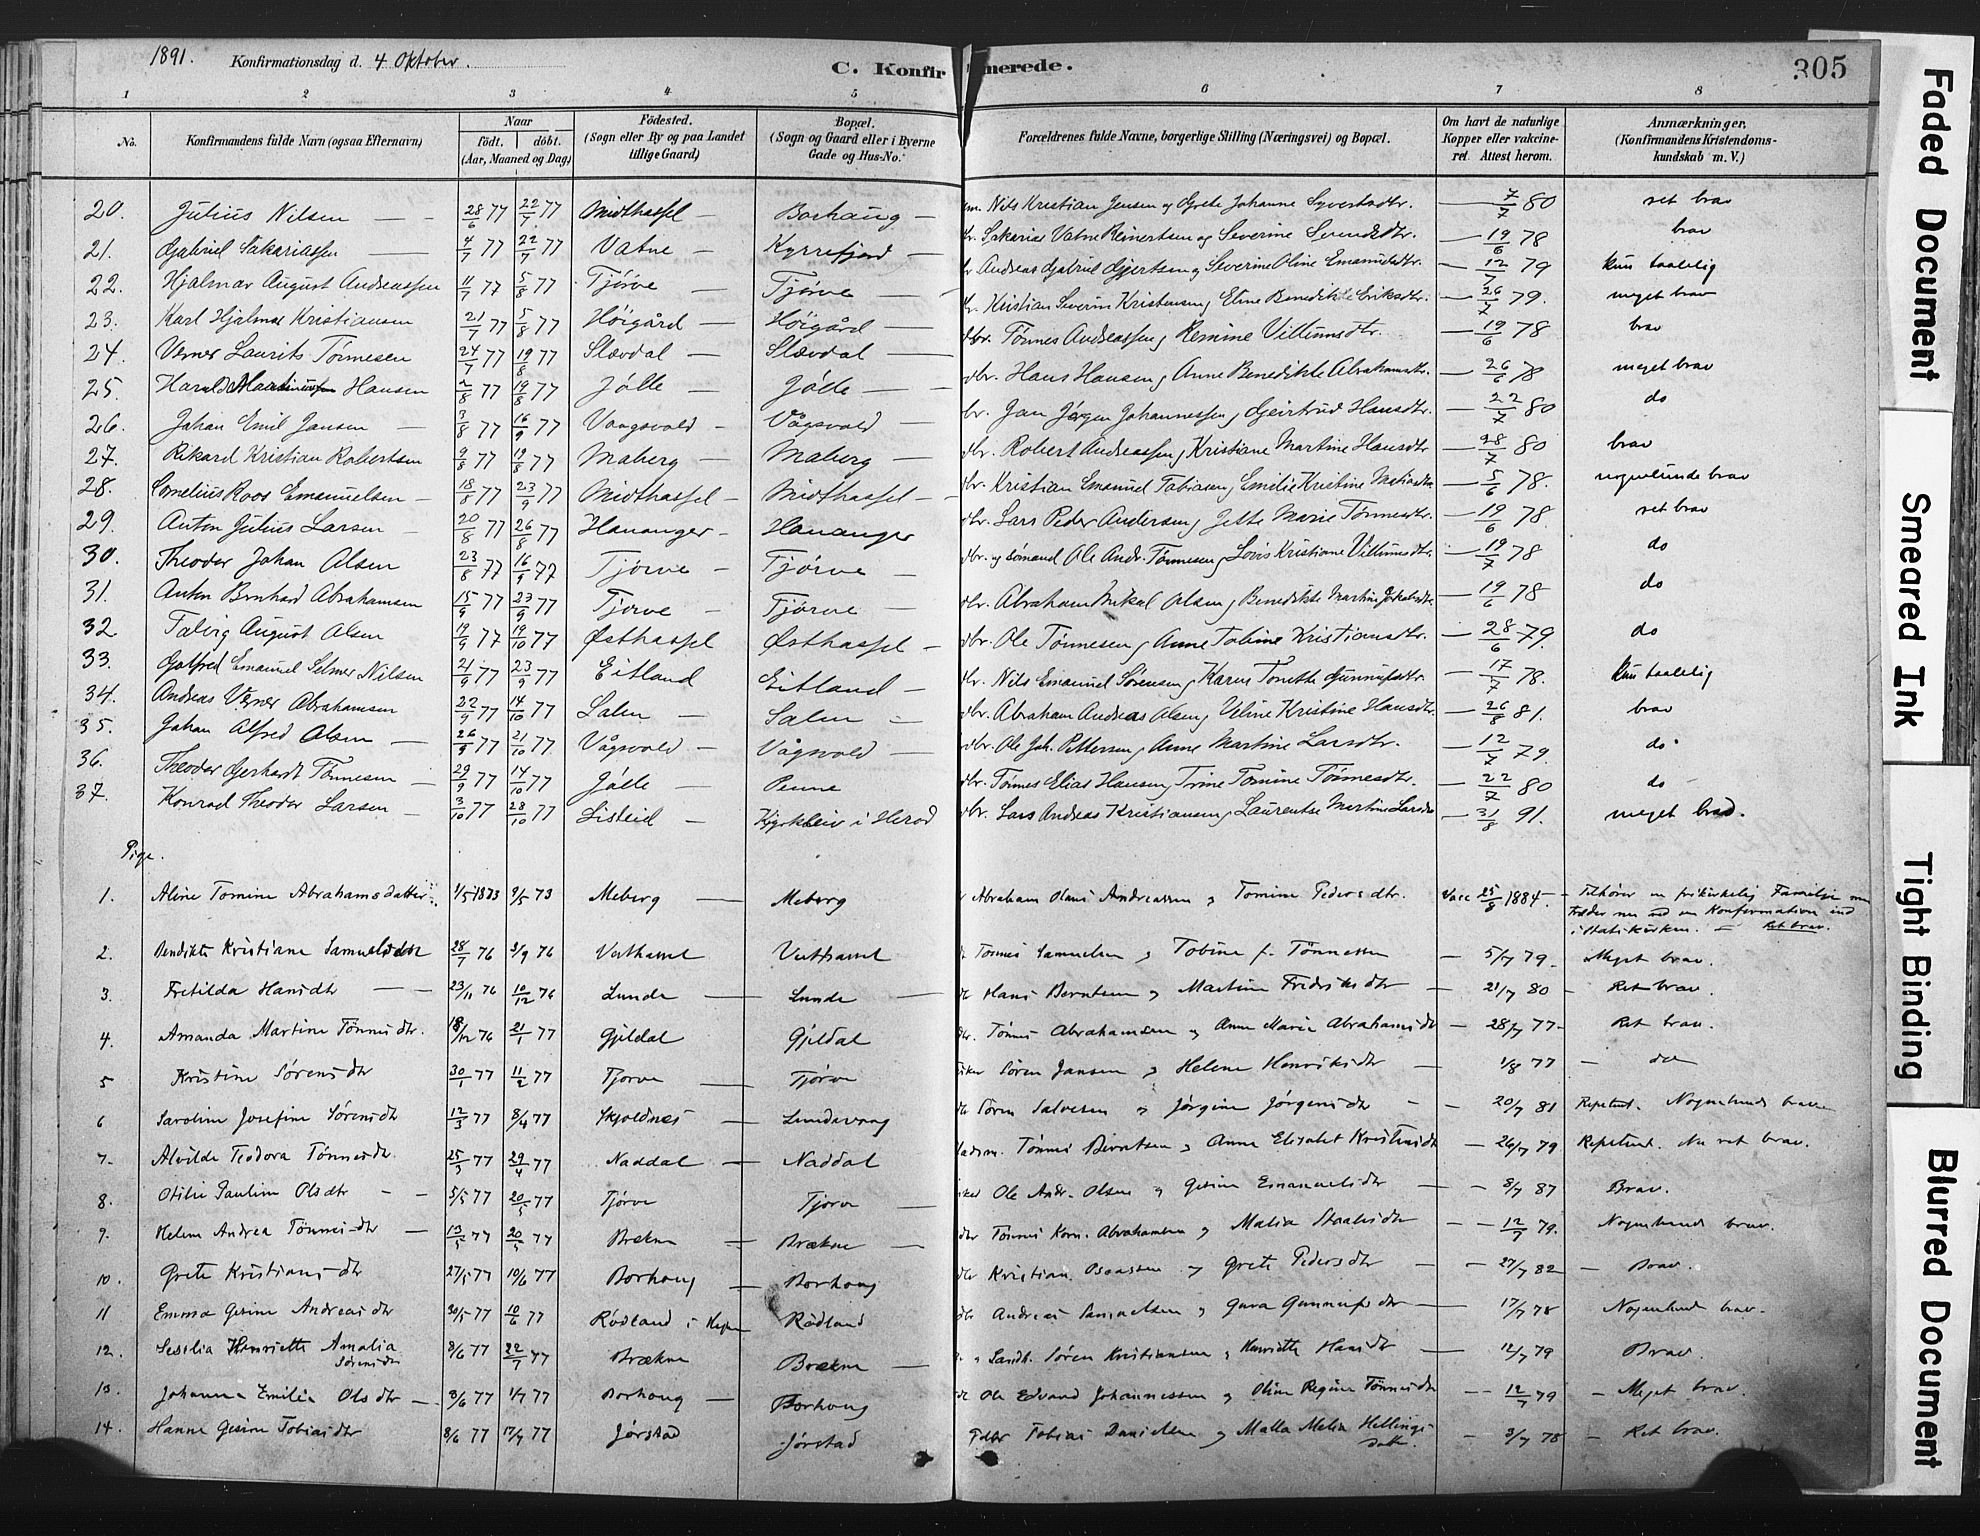 1891. Konfirmationsdag d. 4 Oktober.
C. Konfirmerede.
305
1 2 3 4 5 6 7 8
No. Konfirmandens fulde Navn (ogsaa Efternavn) Naar født. døbt. (Aar, Maaned og Dag) Fødested. (Sogn eller By og paa Landet tillige Gaard) Bopæl. (Sogn og Gaard eller i Byerne Gade og Hus-No.) Forældrenes fulde Navne, borgerlige Stilling (Næringsvei) og Bopæl. Om havt de naturlige Kopper eller vakcineret. Attest herom. Anmærkninger. (Konfirmandens Kristendomskundskab m. V.)
20. Julius Nilsen 28/6 77 22/7 77 Midthassel Borhaug Nils Kristian Jensen og Grete Johanne Syvertsdtr. 7/7 80 ret brav
21. Gabriel Sakariassen 4/7 77 22/7 77 Vatne Kyrrefjord Sakarias Vatne Reinertsen og Severine Svendsdtr. 19/6 78 brav
22. Hjalmar August Andreassen 11/7 77 5/8 77 Tjørve Tjørve Andreas Gabriel Gjertsen og Severine Oline Emanuelsdtr. 12/7 79 kun taalelig
23. Karl Hjalmar Kristiansen 21/7 77 5/8 77 Høigård Høigård Kristian Severin Kristensen og Eline Benedikte Eriksdtr. 26/7 79. meget brav
24. Verner Laurits Tønnesen 24/7 77 19/8 77 Slevdal Slevdal dbr. Tønnes Andreassen og Remine Villumsdtr. 19/6 78 brav
25. Harald Martinussen Hansen 2/8 77 19/8 77 Jølle Jølle dbr. Hans Hansen og Anne Benedikte Abrahamsdtr. 26/6 78 meget brav
26. Johan Emil Jansen 3/8 77 16/9 77 Vaagsvold Vågsvold br. Jan Jørgen Johannessen og Gjeirtrud Hansdtr. 22/7 80 do
27. Rikard Kristian Robertsen 9/8 77 19/8 77 Maberg Maberg dbr. Robert Andreassen og Kristiane Martine Hansdtr. 28/7 80 brav
28. Cornelius Roos Emanuelsen 18/8 77 23/9 77 Midthassel Midthassel dbr. Kristian Emanuel Tobiasen og Emilie Kristine 5/6 78. nogenlunde brav
29. Anton Julius Larsen 20/8 77 26/8 77 Hananger Hananger dbr. Lars Peder Andersen og Jette Marie Tønnesdtr. 19/6 78. ret brav
30. Theodor Johan Olsen 23/8 77 16/9 77 Tjørve Tjørve dbr. og sømand Ole Andr. Tønnesen og Lovis Kristiane Villumsdtr. 19/7 78 do
31. Anton Bernhard Abrahamsen 15/9 77 23/9 77 Tjørve Tjørve dbr. Abraham Mikal Olsen og Benedikte Martine Jakobsdtr. 19/6 78 do
32 Talvig August Olsen 19/9 77 19/10 77 Østhassel Østhassel dbr. Ole Tønnesen og Anne Tobine Kristiansdtr. 28/6 79. do
33. Gotfred Emanuel Selmer Nilsen 21/9 77 23/9 77 Eitland Eitland dbr. Nils Emanuel Sørensen og Karen Tonette Gunnufsdtr. 17/7 78. kun taalelig
34. Andreas Verner Abrahamsen 22/9 77 14/10 77 Salen Salen dbr. Abraham Andreas Olsen og Eline Kristine Hansdtr. 26/8 81. brav
35. Johan Alfred Olsen 26/9 77 21/10 77 Vågsvold Vågsvold dbr. Ole Joh. Pettersen og Anne Martine Larsdtr. 12/7 79. do
36. Theodor Gerhardt Tønnesen 29/9 77 14/10 77 Jølle Penne dbr. Tønnes Elias Hansen og Trine Tomine Tønnesdtr. 22/7 80 do
37. Konrad Theodor Larsen 3/10 77 28/10 77 Listeid Kjørkleiv i Herad dbr. Lars Andreas Kristiansen og Laurentse Martine Larsdtr 31/8 91. meget brav.
Pige.
1. Aline Tomine Abrahamsdatter 1/5 1873 9/5 73 Meberg Meberg Abraham Olaus Andreassen og Tomine Pedersdtr. Vacc 25/8 1884. Tilhører en frikirkelig Familje men
træder nu ved sin Konfirmation ind
i Statskirken. Ret brav.
2. Bendikte Kristiane Samuelsdtr 28/7 76 3/9 76 Vesthassel Vesthassel Tønnes Samuelsen og Tobine f. Tønnessen 5/7 79. Meget brav.
3. Fretilda Hansdtr 23/11 76 10/12 76 Lunde Lunde Hans Berntsen og Martine Fredriksdtr 21/7 80 Ret brav.
4. Amanda Martine Tønnesdtr. 18/12 76 21/1 77 Gjeldal Gjeldal Tønnes Abrahamsen og Anne Marie Abrahamsdtr 28/7 77 Ret brav.
5 Kristine Sørensdtr 30/1 77 11/2 77 Tjørve Tjørve Søren Jansen og Helene Henriksdtr 1/8 77 do
6 Karoline Josefine Sørensdtr 12/3 77 8/4 77 Skjoldnes Lundevaag Søren Salvesen og Jørgine Jørgensdtr 20/7 81 Repetent. Nogenlunde brav
7. Alvilde Teodora Tønnesdtr. 25/3 77 29/4 77 Naddal Naddal Tønnes Berntsen og Anne Elisabet Kristensdtr 26/7 79 Repetent. Nu ret brav.
8. Otilie Pauline Olsdtr 5/5 77 20/5 77 Tjørve Tjørve Ole Andr. Olsen og Gesine Emanuelsdtr 8/7 87 Brav.
9. Helene Andrea Tønnesdtr 13/5 77 20/5 77 Brækne Brækne Tønnes Korn. Abrahamsen og Malia Staalesdtr 12/7 79. Nogenlunde brav.
10. Grete Kristiansdtr 27/5 77 10/6 77 Borhoug Borhoug Kristian Osuassen og Grete Pedersdtr 27/7 82 Brav.
11 Emma Gesine Andreasdtr 30/5 77 10/6 77 Rødland i Rødland Andreas Samuelsen og Gura Gunnufsdtr 17/7 78 Nogenlunde brav.
12. Sesilia Henriette Amalia
Sørensdtr 3/6 77 22/7 77 Brækne Brækne Søren Kristiansen og Henriette Hansdtr 12/7 79 Brav.
13. Johanna Emilie Olsdtr 3/6 77 1/7 77 Borhoug Borhoug Ole Edvard Johannessen og Oline Regine Tønnesdtr 12/7 79 Meget brav.
14. Hanne Gesine Tobiasdtr 8/6 77 17/7 77 Jørstad Jørstad Tobias Danielsen og Malla Malia Hellings-
datter 3/7 78 Ret brav.
Faded Document
Smeared Ink
Tight Binding
Blurred Document